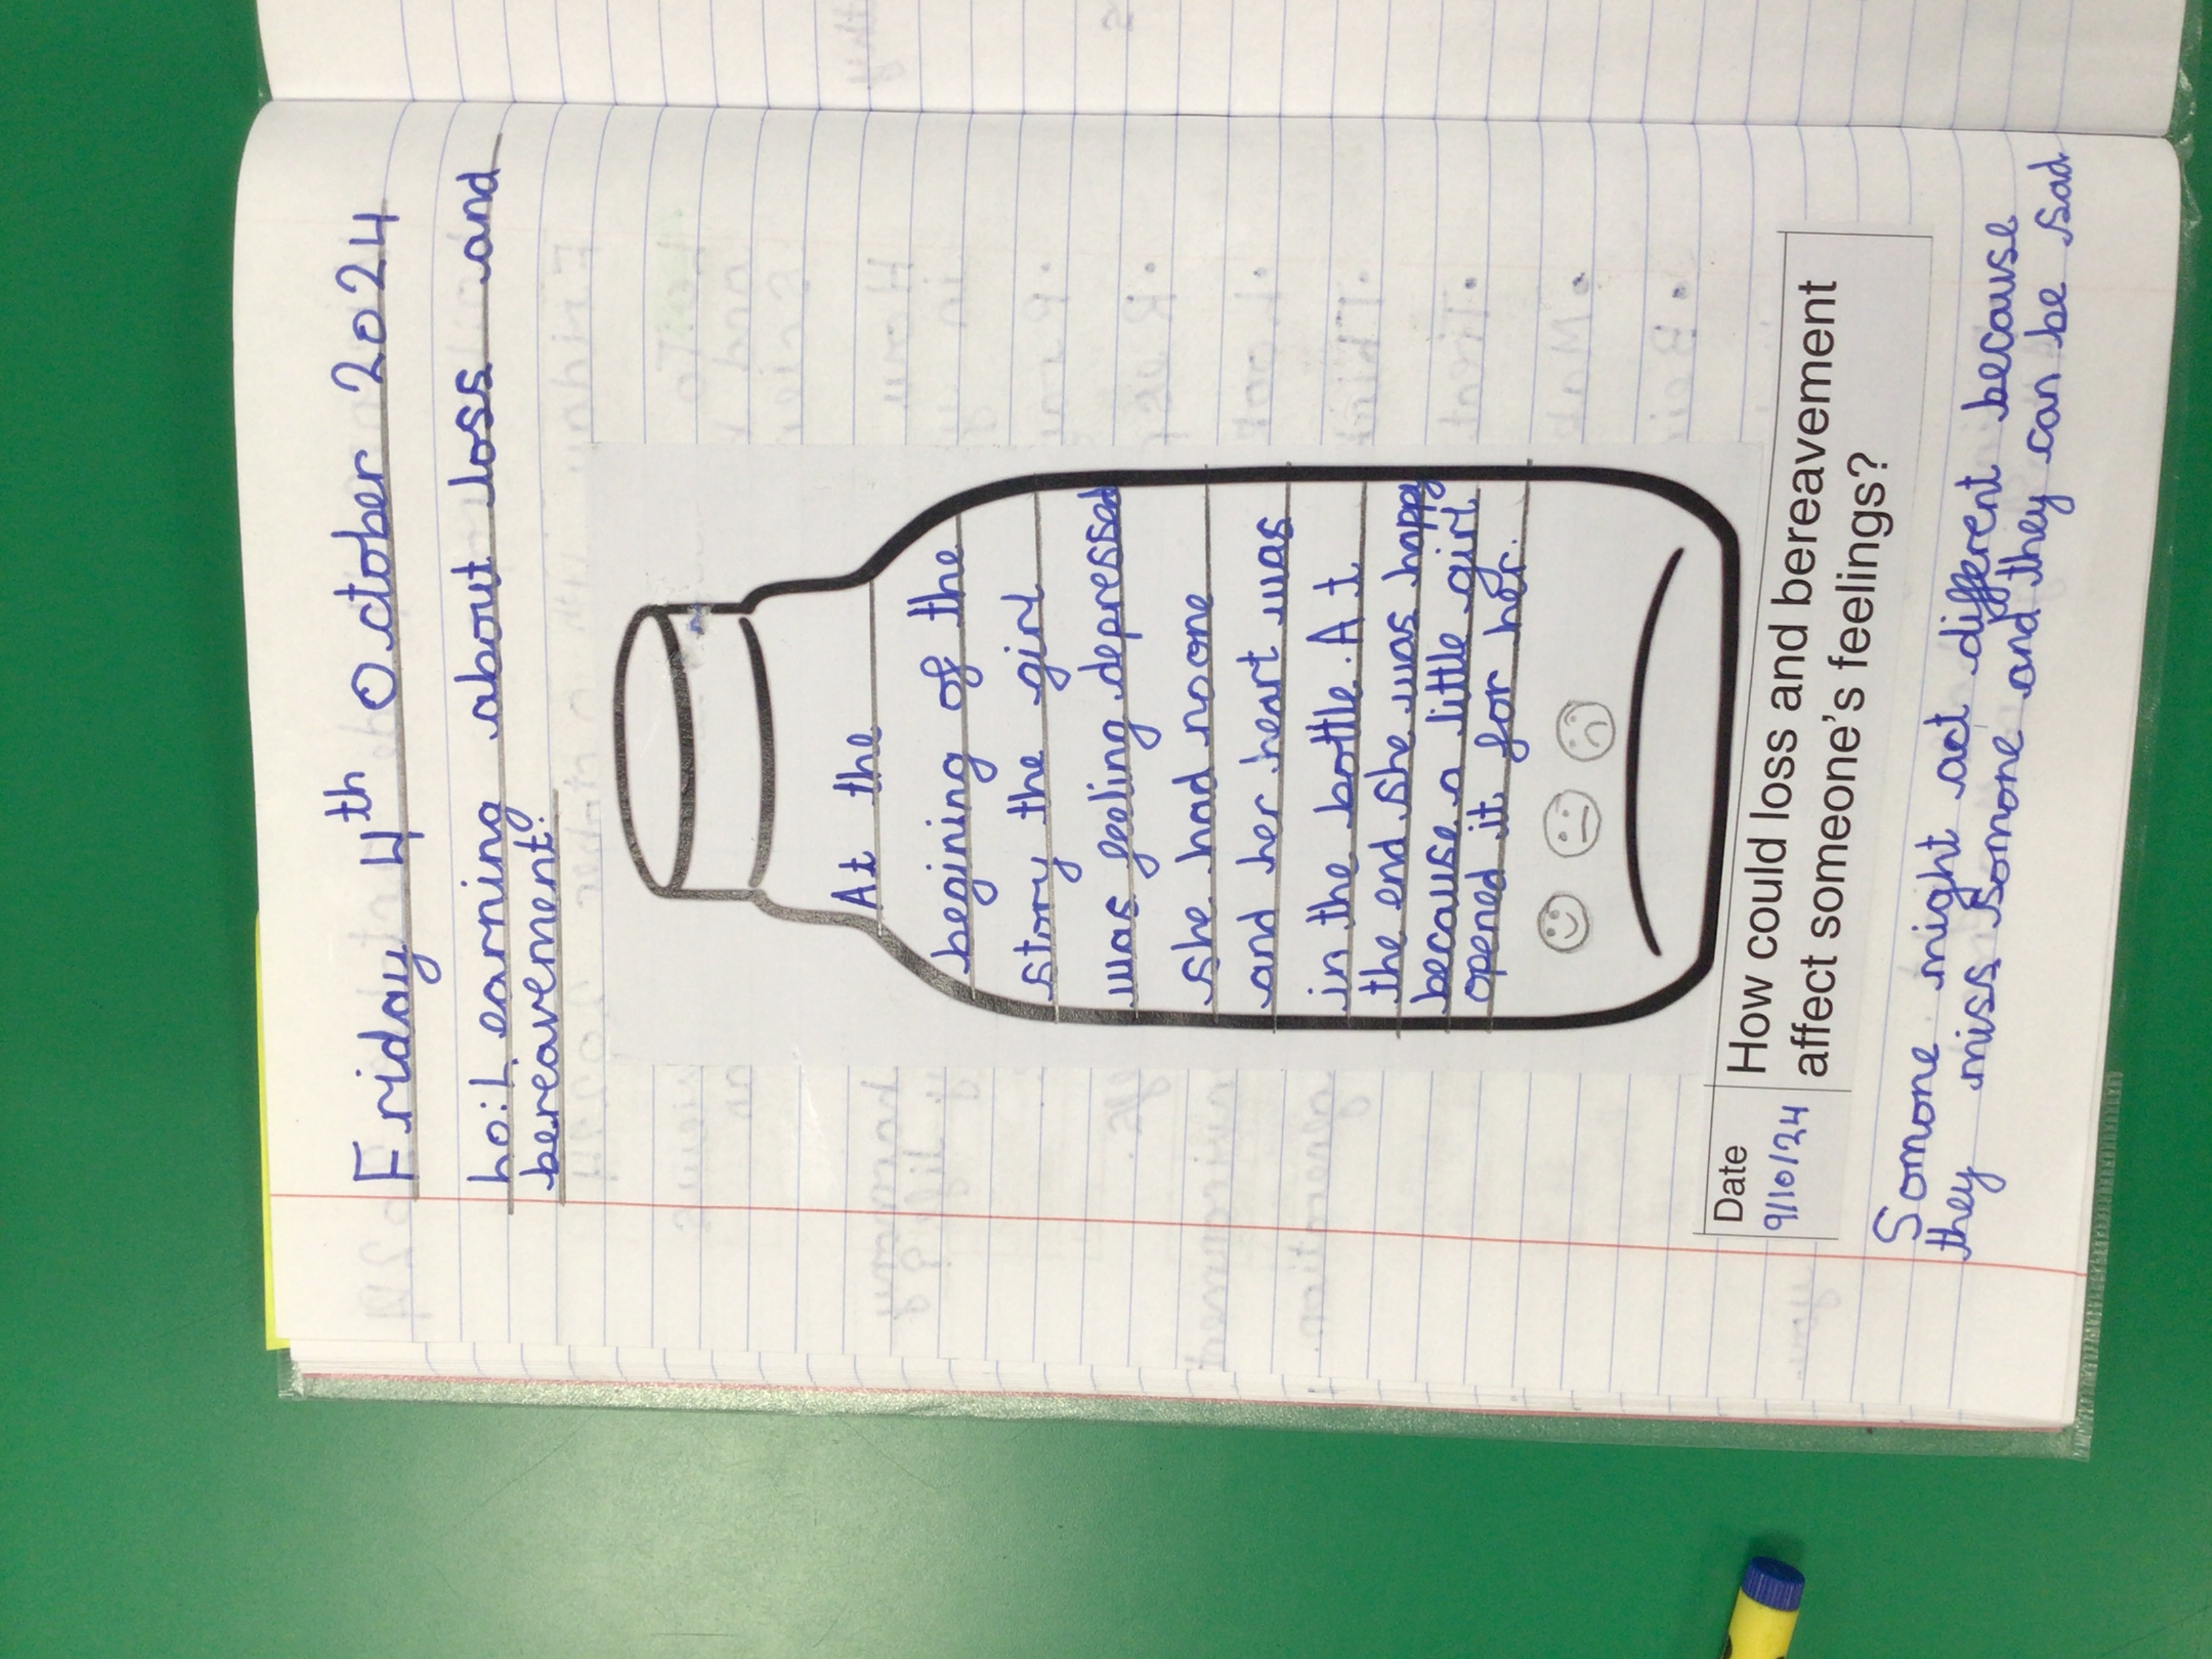 Friday 4th October 2024
Lo: Learning about loss and
bereavement.
At the
begining of the
story the girl
was feeling depressed
she had noone
and her heart was
in the bottle. At
the end she was happy
because a little girl
opened it for her.
Date
9/10/24
How could loss and bereavement
affect someone's feelings?
Somone might act different because
they miss somone and they can be sad